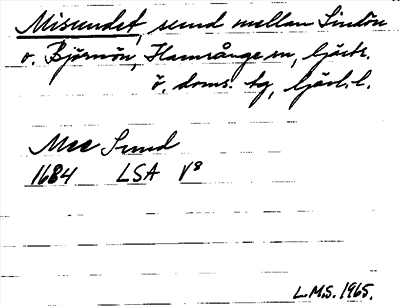 Misundet, sund mellan Lindön
o. Björnön, Hamrånge sn, Gästr.
ö. doms. tg, Gävl. l.
Mee Sund
1684 LSA V8
L.M.S. 1965.